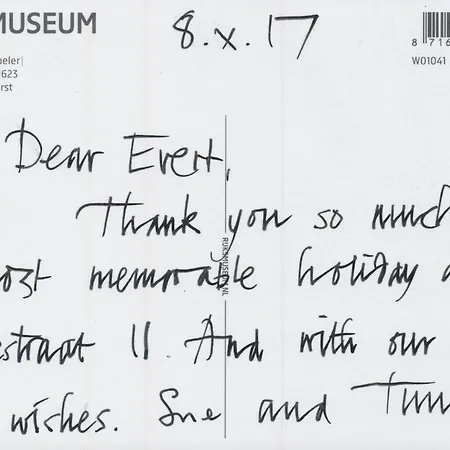 MUSEUM
8.x.17
8 716
W01041
peeler|
1623
rst
Dear Evert,
Thank you so much
most memorable holiday a
estraat 11. And with our
wishes. Sue and Tim
RIJKSMUSEUM.NL